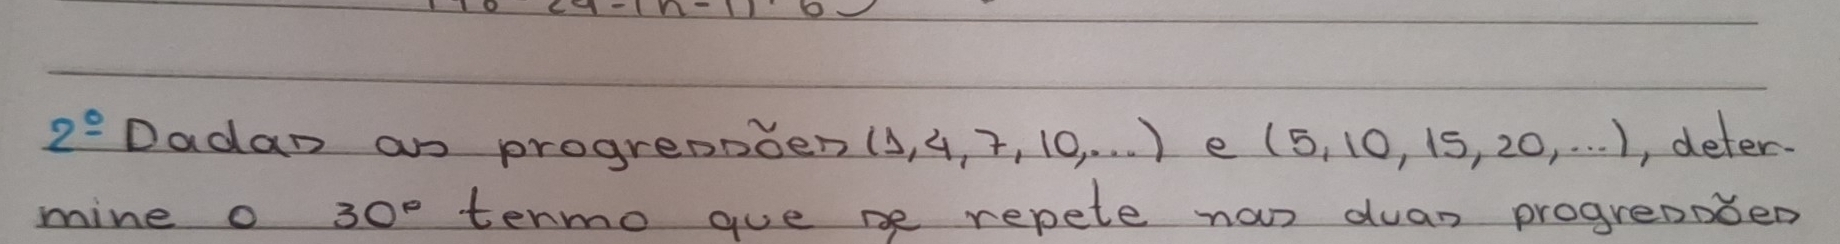 2º Dadas as progressões (1, 4, 7, 10, ...) e (5, 10, 15, 20, ...), deter-
mine o 30º termo que se repete nas duas progressões